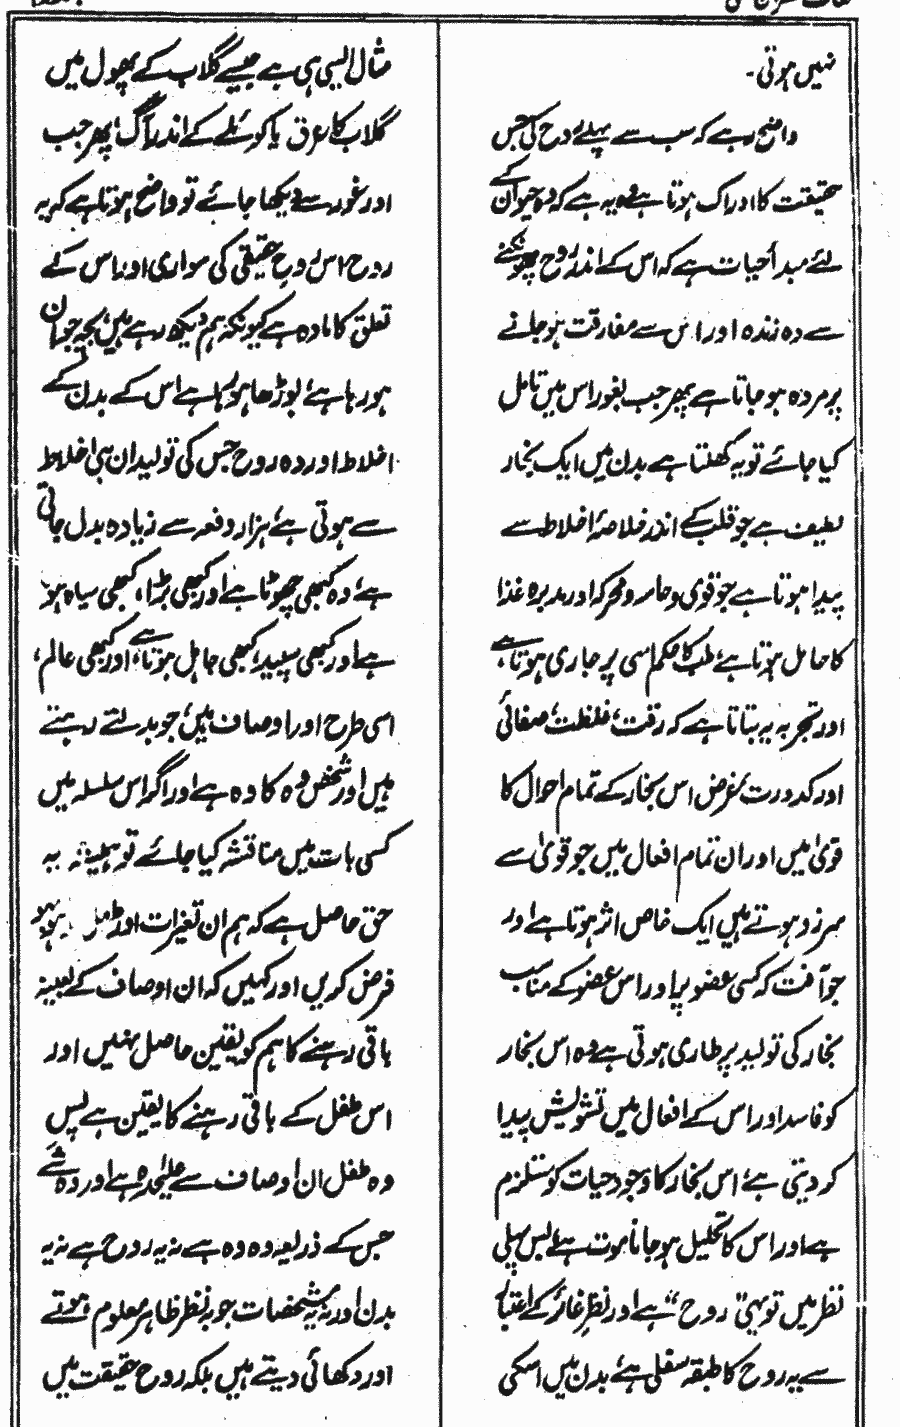 نہیں ہوتی۔
واضح رہے کہ سب سے پہلے روح کی جس
حقیقت کا ادراک ہوتا ہے وہ یہ ہے کہ وہ حیوان کے
لئے مبدأ حیات ہے کہ اس کے اندر روح پھونکنے
سے وہ زندہ اور اس سے مفارقت ہوجانے
پر مردہ ہو جاتا ہے پھر جب بغور اس میں تامل
کیا جائے تو یہ کھلتا ہے بدن میں ایک بخار
لطیف ہے جو قلب کے اندر خلاصۂ اخلاط سے
پیدا ہوتا ہے جو قویٰ و حاسہ و محرکہ اور مدبرہ غذا
کا حامل ہوتا ہے، طب کا حکم اسی پر جاری ہوتا ہے،
اور تجربہ یہ بتاتا ہے کہ رقت، غلظت، صفائی
اور کدورت غرض اس بخار کے تمام احوال کا
قویٰ میں اور ان تمام افعال میں جو قویٰ سے
سرزد ہوتے ہیں ایک خاص اثر ہوتا ہے اور
جو آفت کہ کسی عضو پر اور اس عضو کے مناسب
بخار کی تولید پر طاری ہوتی ہے وہ اس بخار
کو فاسد اور اس کے افعال میں تشویش پیدا
کر دیتی ہے، اس بخار کا وجود حیات کو مستلزم
ہے اور اس کا تحلیل ہو جانا موت ہے، پس پہلی
نظر میں تو یہی "روح" ہے اور نظرِ غائر کے اعتبار
سے یہ روح کا طبقہ سفلی ہے، بدن میں اسکی
مثال ایسی ہی ہے جیسے گلاب کے پھول میں
گلاب کا عرق یا کوئلے کے اندر آگ، پھر جب
اور غور سے دیکھا جائے تو واضح ہوتا ہے کہ یہ
روح اس روحِ حقیقی کی سواری اور اس کے
تعلق کا مادہ ہے کیونکہ ہم دیکھ رہے ہیں، بچہ جوان
ہو رہا ہے، بوڑھا ہو رہا ہے اس کے بدن کے
اخلاط اور وہ روح جس کی تولید ان ہی اخلاط
سے ہوتی ہے، ہزار دفعہ سے زیادہ بدل جاتی
ہے، وہ کبھی چھوٹا ہے اور کبھی بڑا، کبھی سیاہ ہوتا
ہے اور کبھی سپید، کبھی جاہل ہوتا ہے، اور کبھی عالم،
اسی طرح اور اوصاف ہیں، جو بدلتے رہتے
ہیں اور شخص وہ کا وہ ہے اور اگر اس سلسلہ میں
کسی بات میں مناقشہ کیا جائے تو ہمیشہ یہ
حق حاصل ہے کہ ہم ان تغیرات اور
فرض کریں اور کہیں کہ ان اوصاف کے بعینہ
باقی رہنے کا ہم کو یقین حاصل نہیں اور
اس طفل کے باقی رہنے کا یقین ہے پس
وہ طفل ان اوصاف سے علیحدہ ہے اور وہ شے
جس کے ذریعہ وہ وہ ہے نہ یہ روح ہے نہ یہ
بدن اور نہ یہ مشخصات جو بہ نظر ظاہر معلوم ہوتے
اور دکھائی دیتے ہیں بلکہ روح حقیقت میں